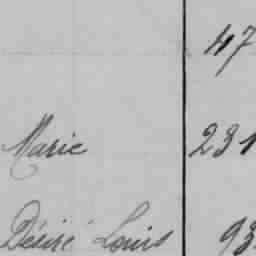 47
Marie 231
Désiré Louis 93